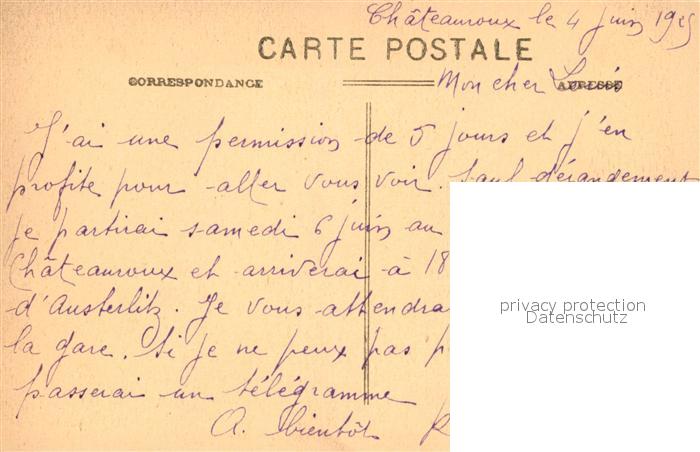 Châteauroux le 4 juin 1925
CARTE POSTALE
CORRESPONDANCE
ADRESSE
Mon cher
J'ai une permission de 5 jours et j'en
profite pour aller vous voir. Sauf dérangement
je partirai samedi 6 juin au
Châteauroux et arriverai à 18
d'Austerlitz. Je vous attendra
la gare. Si je ne peux pas p
passerai un télégramme
A bientôt R
privacy protection
Datenschutz